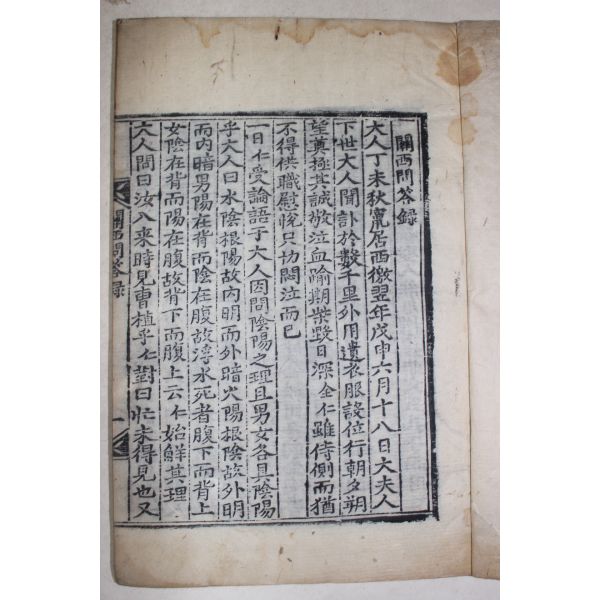 關西問答録
大人丁未秋竄居西徼翌年戊申六月十八日大夫人
下世大人聞訃於數千里外用遺衣服設位行朝夕朔
望奠極其誠敬泣血踰期柴毁日深全仁雖侍側而猶
不得供職慰悅只切悶泣而已
一日仁受論語于大人因問陰陽之理且男女各具陰陽
乎大人曰水陰根陽故内明而外暗火陽根陰故外明
而内暗男陽在背而陰在腹故浮水死者腹下而背上
女陰在背而陽在腹故背下而腹上云仁始鮮其理
大人問曰汝入来時見曺植乎仁對曰忙未得見也又
關西問荅録
一